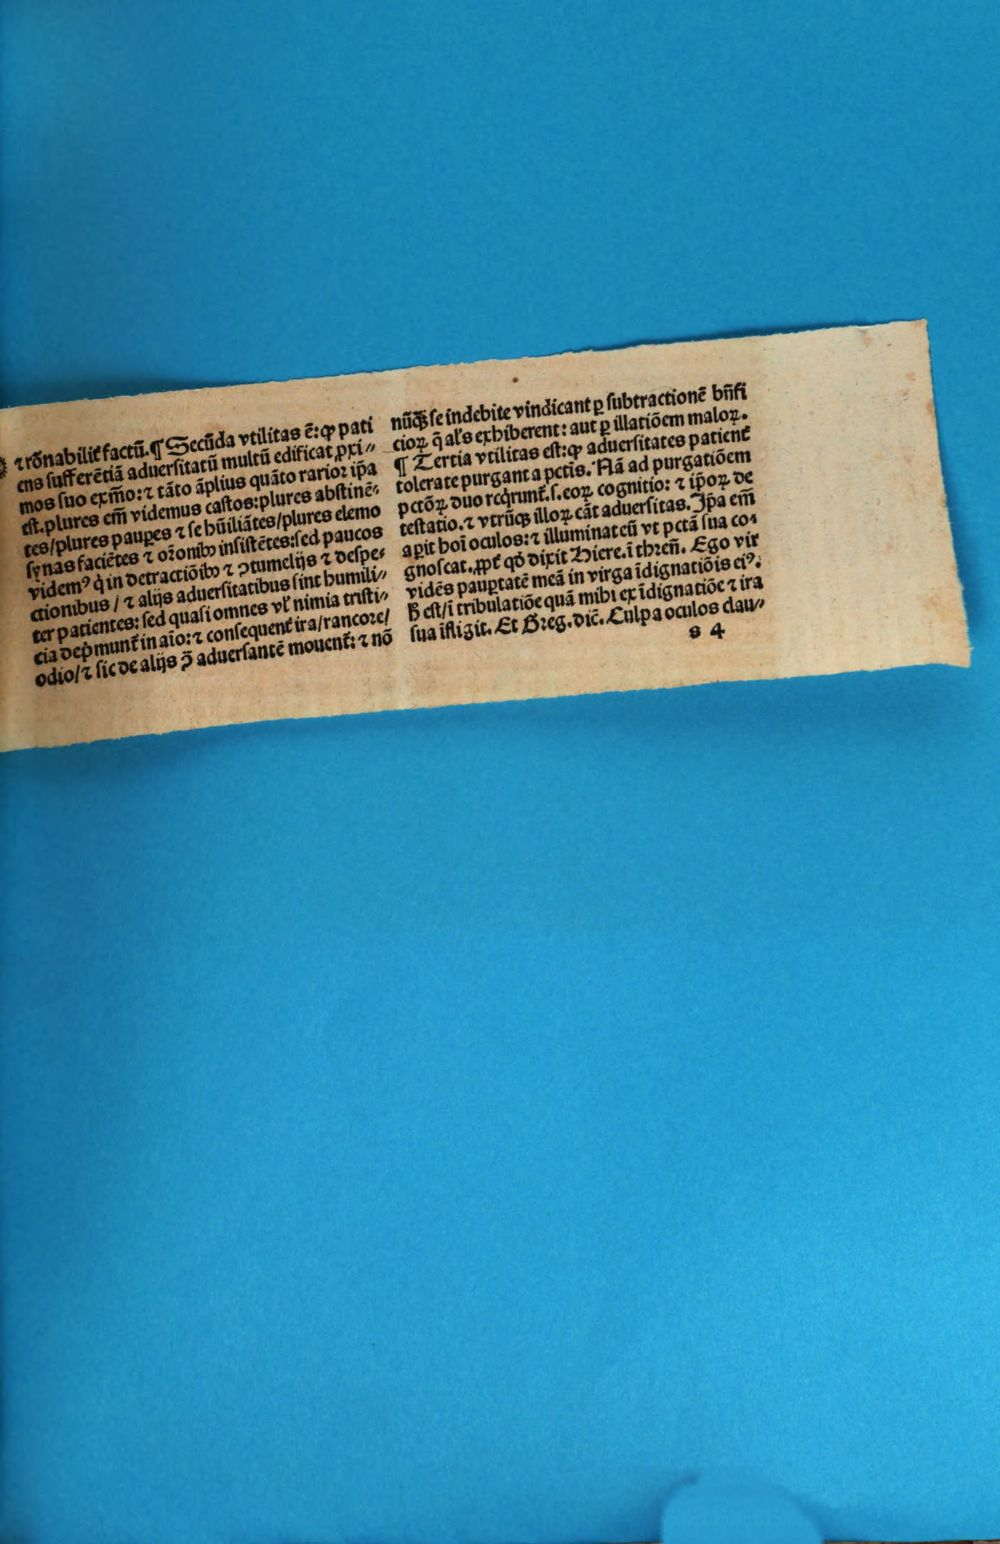 ⁊ rõnabilit̃ factũ. ¶ Secũda vtilitas ẽ: ꝙ pati
ens sufferẽtiã aduersitatũ multũ edificat ꝓxi⸗
mos suo exm̃o: ⁊ tãto ãplius quãto rarior ip̃a
est. plures em̃ videmus castos: plures abstinẽ⸗
tes/ plures pauꝑes ⁊ se hũiliãtes/ plures elemo
synas faciẽtes ⁊ or̃onibꝰ insistẽtes: sed paucos
videmꝰ q̇ in detractiõibꝰ ⁊ ꝯtumelijs ⁊ despe⸗
ctionibus / ⁊ alijs aduersitatibus sint humili⸗
ter patientes: sed quasi omnes vl̃ nimia tristi⸗
cia dep̃munt̃ in aĩo: ⁊ consequent̃ ira/ rancore/
odio/ ⁊ sic de alijs ꝯ̃ aduersantẽ mouent̃: ⁊ nõ
nũꝙ̃ se indebite vindicant ꝑ subtractionẽ bñfi
cioꝝ q̃ al̃s exhiberent: aut ꝑ illatiõem maloꝝ.
¶ Tertia vtilitas est: ꝙ aduersitates patient̃
tolerate purgant a pctis. Nã ad purgatiõem
pctõꝝ duo reqrunt̃. s. eoꝝ cognitio: ⁊ ip̃oꝝ de
testatio. ⁊ vtrũqꝫ illoꝝ cãt aduersitas. Ip̃a em̃
aꝑit hoĩ oculos: ⁊ illuminat eũ vt pctã sua co⸗
gnoscat. ꝓpt̃ qď dixit Hiere. ĩ threñ. Ego vir
vidẽs pauꝑtatẽ meã in virga ĩdignatiõis eiꝰ.
ħ est/ ĩ tribulatiõe quã mihi ex ĩdignatiõe ⁊ ira
sua ĩfligit. Et Greg. dič. Culpa oculos clau⸗
s 4